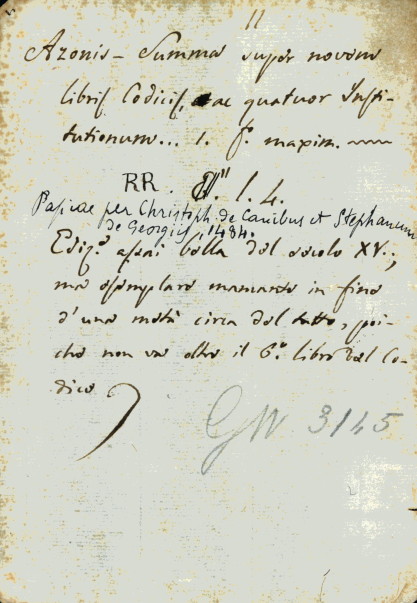 11
Azonis - Summa super novem
libris Codicis, ac quatuor Insti-
tutionum... 1. f.º maxim.
RR. 1. 4.
Papiae per Christoph. de Canibus et Stephanum
de Georgiis, 1484.
Ediz.e assai bella del secolo XV.;
ma esemplare mancante in fine
d'una metà circa del tutto, poi-
chè non va oltre il 6.º libro del Co-
dice
GW 3145